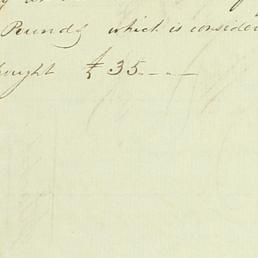 Pounds which is consider
ought £ 35 - - -